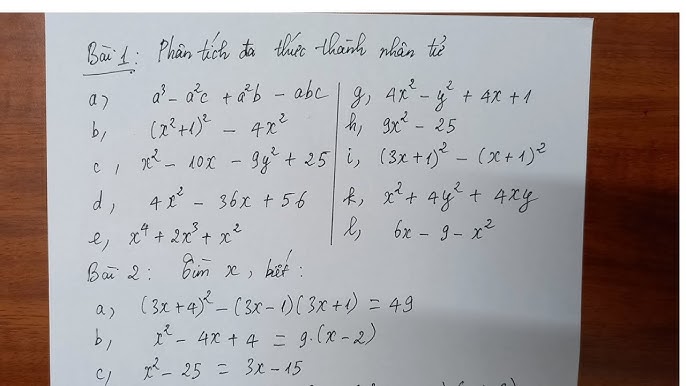 Bài 1: Phân tích đa thức thành nhân tử
a) a³ - a²c + a²b - abc
b, (x²+1)² - 4x²
c, x² - 10x - 9y² + 25
d, 4x² - 36x + 56
e, x⁴ + 2x³ + x²
g, 4x² - y² + 4x + 1
h, 9x² - 25
i, (3x+1)² - (x+1)²
k, x² + 4y² + 4xy
l, 6x - 9 - x²
Bài 2: Tìm x, biết:
a) (3x+4)² - (3x-1)(3x+1) = 49
b, x² - 4x + 4 = 9.(x-2)
c, x² - 25 = 3x - 15